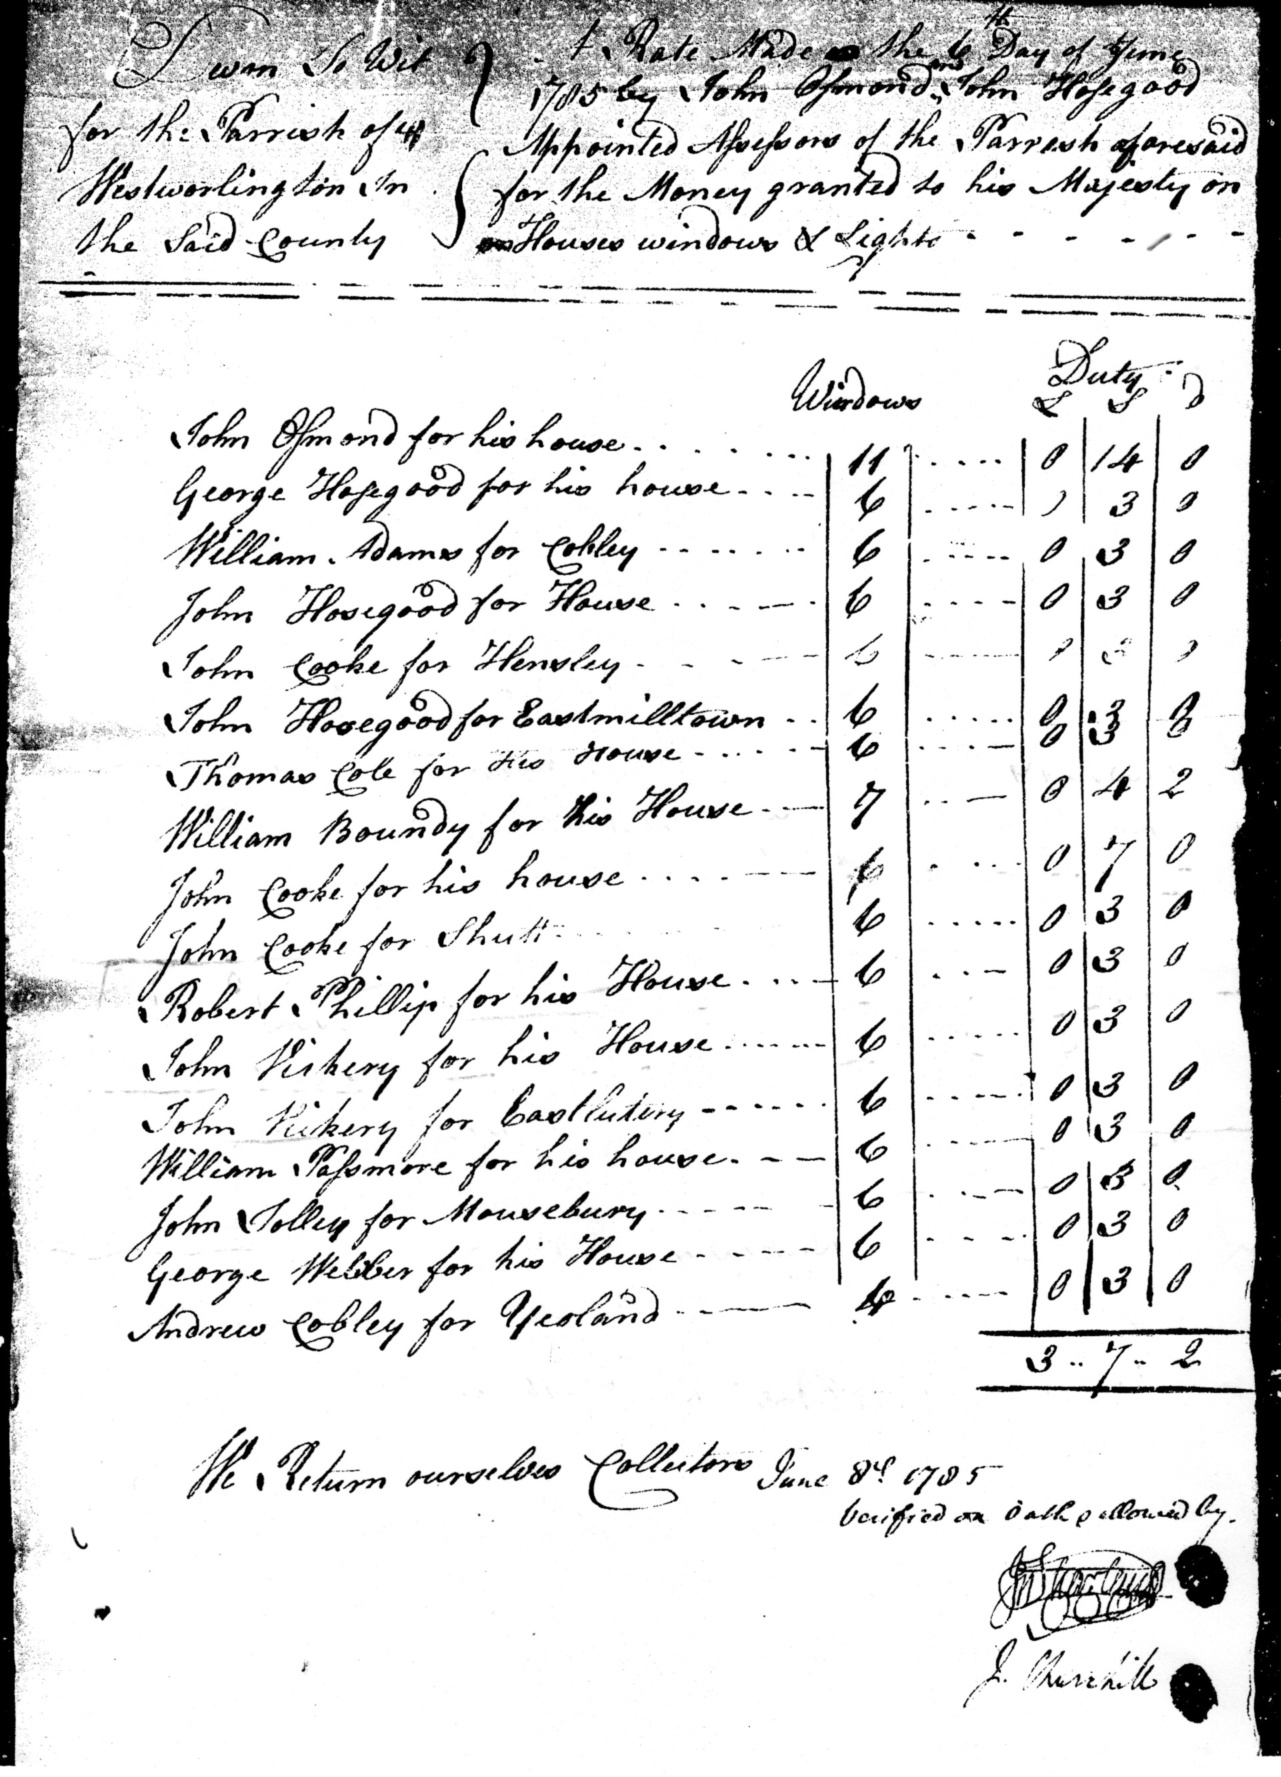 Devon To Wit
for the Parrish of
Westworlington In
the Said County
A Rate Made the 6th Day of June
1785 by John Osmond and John Hosegood
Appointed Assessors of the Parrish aforesaid
for the Money granted to his Majesty on
Houses windows & Lights
Windows Duty
£ S D
John Osmond for his house 11 0 14 0
George Hosegood for his house 6 0 3 0
William Adams for Cobley 6 0 3 0
John Hosegood for House 6 0 3 0
John Cooke for Hensley 6 0 3 0
John Hosegood for Eastmilltown 6 0 3 0
Thomas Cole for his House 6 0 3 0
William Boundy for his House 7 0 4 2
John Cooke for his house 0 7 0
John Cooke for Shutt 6 0 3 0
Robert Phillip for his House 6 0 3 0
John Vickery for his House 6 0 3 0
John Vickery for Eastlutery 6 0 3 0
William Passmore for his house 6 0 3 0
John Tolley for Mousebury 6 0 3 0
George Webber for his House 6 0 3 0
Andrew Cobley for Yeoland 0 3 0
3 .. 7 .. 2
We Return ourselves Collectors June 8d 1785
Verified on Oath & allowed by
J. Churchill